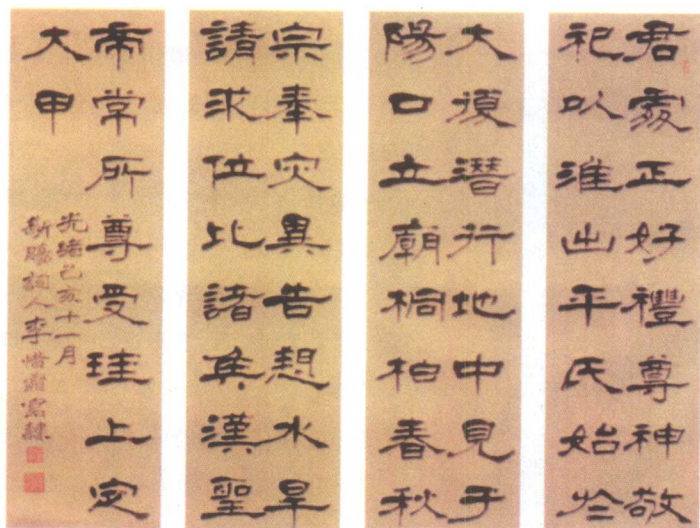 君處正好禮尊神敬
祀以淮出平氏始於
大復潛行地中見于
陽口立廟桐柏春秋
宗奉灾異告愬水旱
請求位比諸侯漢聖
帝常所尊受珪上定
大甲
光緒己亥十一月
詞人李惜霜寫隸